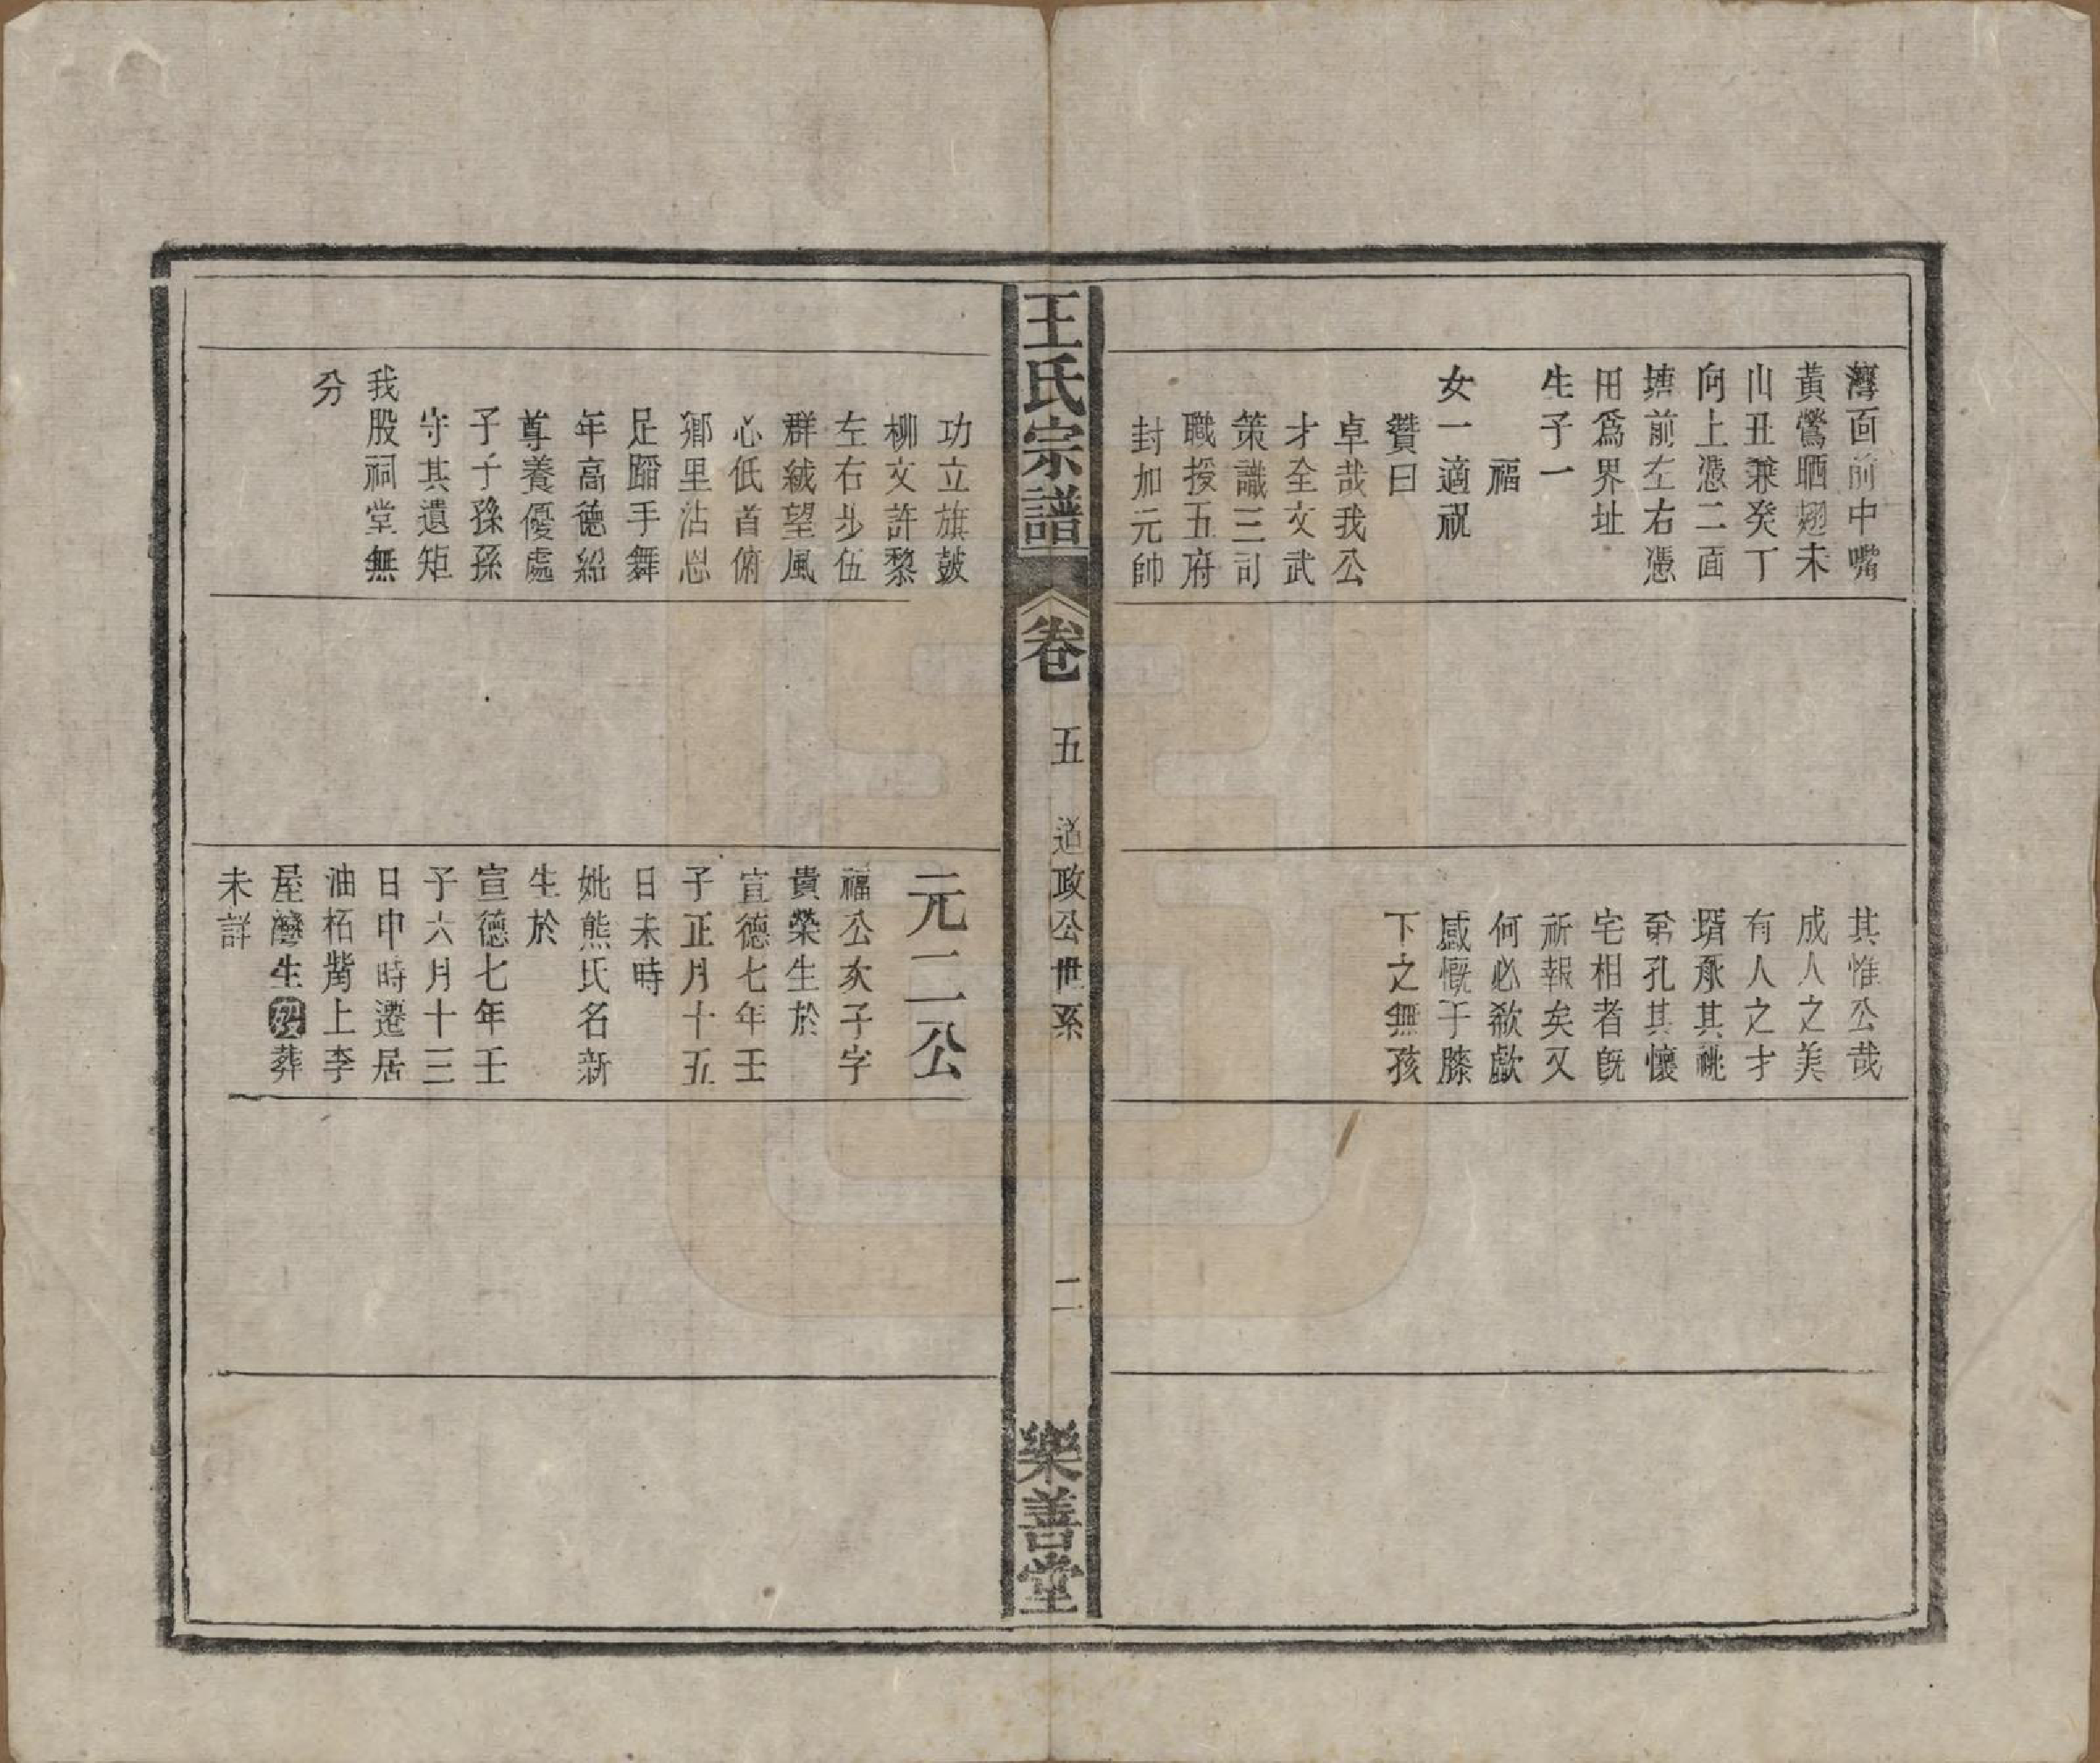 灣面前中嘴
黃鶯晒翅未
山丑兼癸丁
向上憑二面
塘前左右憑
田爲界址
生子一
福
女一適祝
贊曰
卓哉我公
才全文武
策識三司
職授五府
封加元帥
其惟公哉
成人之美
有人之才
壻承其祧
弟孔其懷
宅相者旣
祈報矣又
何必欷歔
感慨于膝
下之無孩
王氏宗譜
卷
五
道政公世系
二
樂善堂
功立旗鼓
柳文許黎
左右步伍
群絨望風
心低首俯
鄉里沾恩
足蹈手舞
年高德紹
尊養優處
子子孫孫
守其遺矩
我股祠堂無
分
元二公
福公次子字
貴榮生於
宣德七年壬
子正月十五
日未時
妣熊氏名新
生於
宣德七年壬
子六月十三
日申時遷居
油柘嘴上李
屋灣生歿葬
未詳